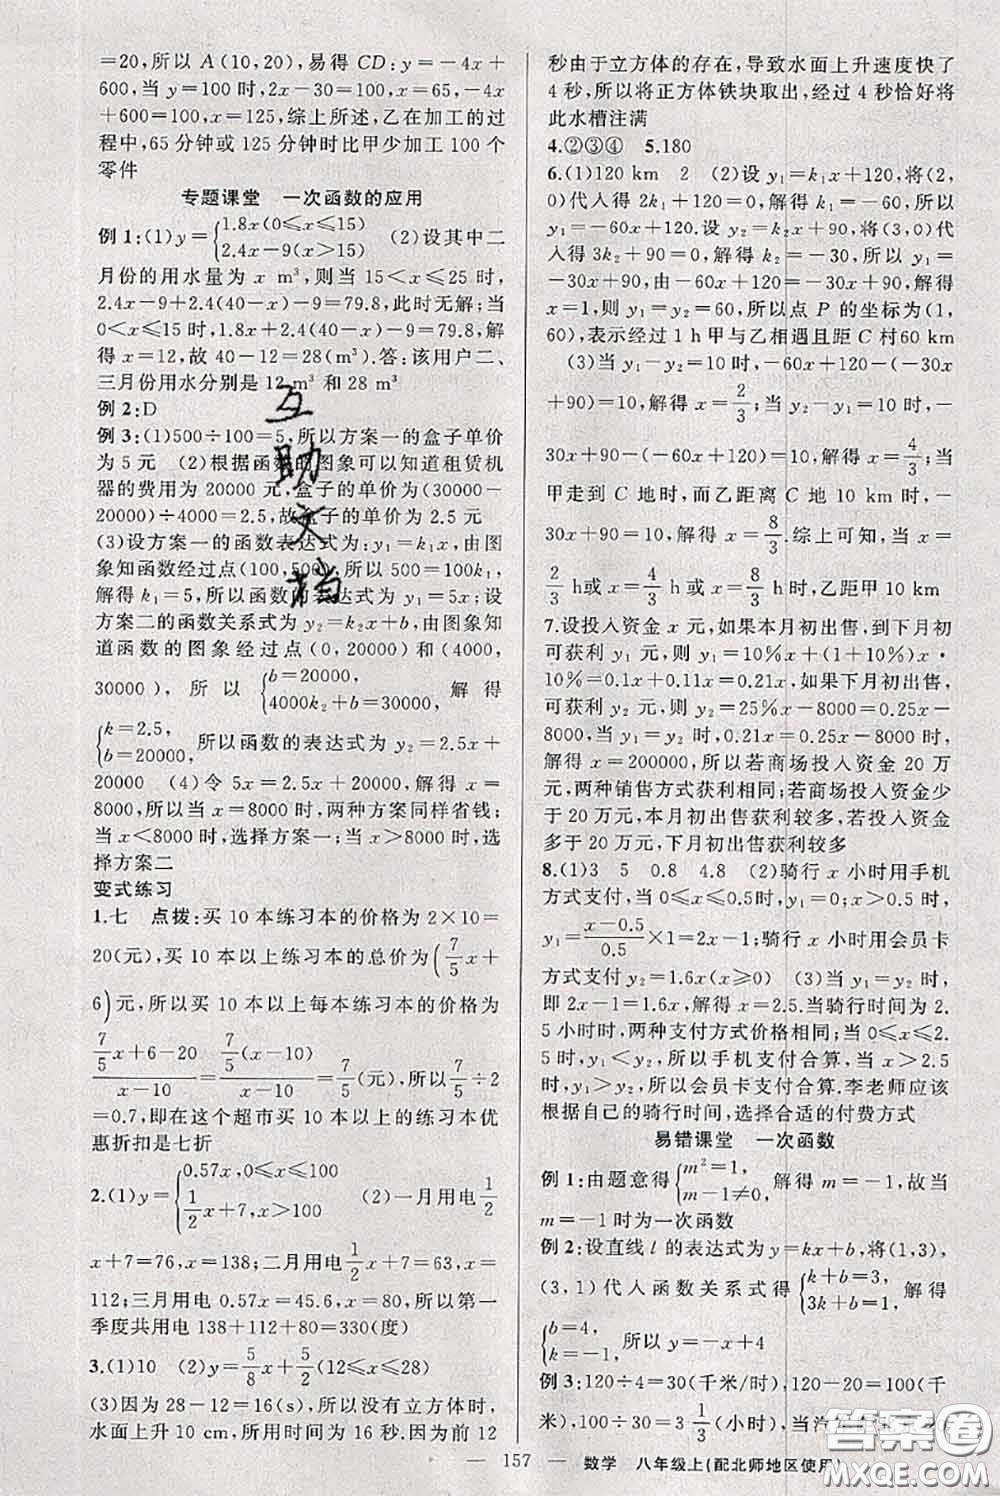 =20,所以 A(10,20),易得 CD:y=-4x+
600,当 y=100 时,2x-30=100,x=65,-4x
+600=100,x=125,综上所述,乙在加工的过
程中,65 分钟或 125 分钟时比甲少加工 100 个
零件
专题课堂 一次函数的应用
例 1:(1)y={1.8x(0≤x≤15) 2.4x-9(x>15) (2)设其中二
月份的用水量为 x m³,则当 15<x≤25 时,
2.4x-9+2.4(40-x)-9=79.8,此时无解;当
0<x≤15时,1.8x+2.4(40-x)-9=79.8,解
得 x=12,故 40-12=28(m³).答:该用户二、
三月份用水分别是 12 m³ 和 28 m³
例 2:D
例 3:(1)500÷100=5,所以方案一的盒子单价
为 5 元 (2)根据函数的图象可以知道租赁机
器的费用为 20000 元,盒子的单价为(30000-
20000)÷4000=2.5,故盒子的单价为 2.5 元
(3)设方案一的函数表达式为:y₁=k₁x,由图
象知函数经过点(100,500),所以 500=100k₁,
解得 k₁=5,所以函数的表达式为 y₁=5x;设
方案二的函数关系式为 y₂=k₂x+b,由图象知
道函数的图象经过点(0,20000)和(4000,
30000),所以{b=20000, 4000k₂+b=30000, 解得
{k=2.5, b=20000, 所以函数的表达式为 y₂=2.5x+
20000 (4)令 5x=2.5x+20000,解得 x=
8000,所以当 x=8000 时,两种方案同样省钱;
当 x<8000 时,选择方案一;当 x>8000 时,选
择方案二
变式练习
1.七 点拨:买 10 本练习本的价格为 2×10=
20(元),买 10 本以上练习本的总价为(7/5x+
6)元,所以买 10 本以上每本练习本的价格为
(7/5x+6-20)/(x-10)=7/5(x-10)/(x-10)=7/5(元),所以7/5÷2
=0.7,即在这个超市买 10 本以上的练习本优
惠折扣是七折
2.(1)y={0.57x,0≤x≤100 1/2x+7,x>100 (2)一月用电1/2
x+7=76,x=138;二月用电1/2x+7=63,x=
112;三月用电 0.57x=45.6,x=80,所以第一
季度共用电 138+112+80=330(度)
3.(1)10 (2)y=5/8x+5/2(12≤x≤28)
(3)因为 28-12=16(s),所以没有立方体时,
水面上升 10 cm,所用时间为 16 秒.因为前 12
秒由于立方体的存在,导致水面上升速度快了
4 秒,所以将正方体铁块取出,经过 4 秒恰好将
此水槽注满
4.②③④ 5.180
6.(1)120 km 2 (2)设 y₁=k₁x+120,将(2,
0)代入得 2k₁+120=0,解得 k₁=-60,所以
y₁=-60x+120,设 y₂=k₂x+90,将(3,0)代
入得 3k₂+90=0,解得 k₂=-30,所以 y₂=
-30x+90,由-60x+120=-30x+90,解得
x=1,则 y₁=y₂=60,所以点 P 的坐标为(1,
60),表示经过 1 h 甲与乙相遇且距 C 村60 km
(3)当 y₁-y₂=10 时,-60x+120-(-30x
+90)=10,解得 x=2/3;当 y₂-y₁=10 时,-
30x+90-(-60x+120)=10,解得 x=4/3;当
甲走到 C 地时,而乙距离 C 地 10 km 时,
-30x+90=10,解得 x=8/3.综上可知,当 x=
2/3 h或 x=4/3 h或 x=8/3 h时,乙距甲 10 km
7.设投入资金 x 元,如果本月初出售,到下月初
可获利 y₁ 元,则 y₁=10%x+(1+10%)x·
10%=0.1x+0.11x=0.21x,如果下月初出售,
可获利 y₂ 元,则 y₂=25%x-8000=0.25x-
8000,当 y₁=y₂ 时,0.21x=0.25x-8000 时,
解得 x=200000,所以若商场投入资金 20 万
元,两种销售方式获利相同;若商场投入资金少
于 20 万元,本月初出售获利较多,投入资金
多于 20 万元,下月初出售获利较多
8.(1)3 5 0.8 4.8 (2)骑行 x 小时用手机
方式支付,当 0≤x≤0.5时,y₁=0;当 x>0.5时,
y₁=(x-0.5)/0.5×1=2x-1;骑行 x 小时用会员卡
方式支付 y₂=1.6x(x≥0) (3)当 y₁=y₂ 时,
即 2x-1=1.6x,解得 x=2.5.当骑行时间为 2.
5 小时时,两种支付方式价格相同;当 0≤x≤2.
5时,y₁<y₂,所以手机支付合算.当 x>2.5
时,y₁>y₂,所以会员卡支付合算.李老师应该
根据自己的骑行时间,选择合适的付费方式
易错课堂 一次函数
例 1:由题意得{m²=1, m-1≠0, 解得 m=-1,故当
m=-1 时为一次函数
例 2:设直线 l 的表达式为 y=kx+b,将(1,3),
(3,1)代入函数关系式得{k+b=3, 3k+b=1, 解得
{b=4, k=-1, 所以 y=-x+4
例 3:120÷4=30(千米/时),120-20=100(千
米),100÷30=3 1/3(小时),当汽
互助文档
答案圈
MXQE.COM
157 数学 八年级上(配北师地区使用)